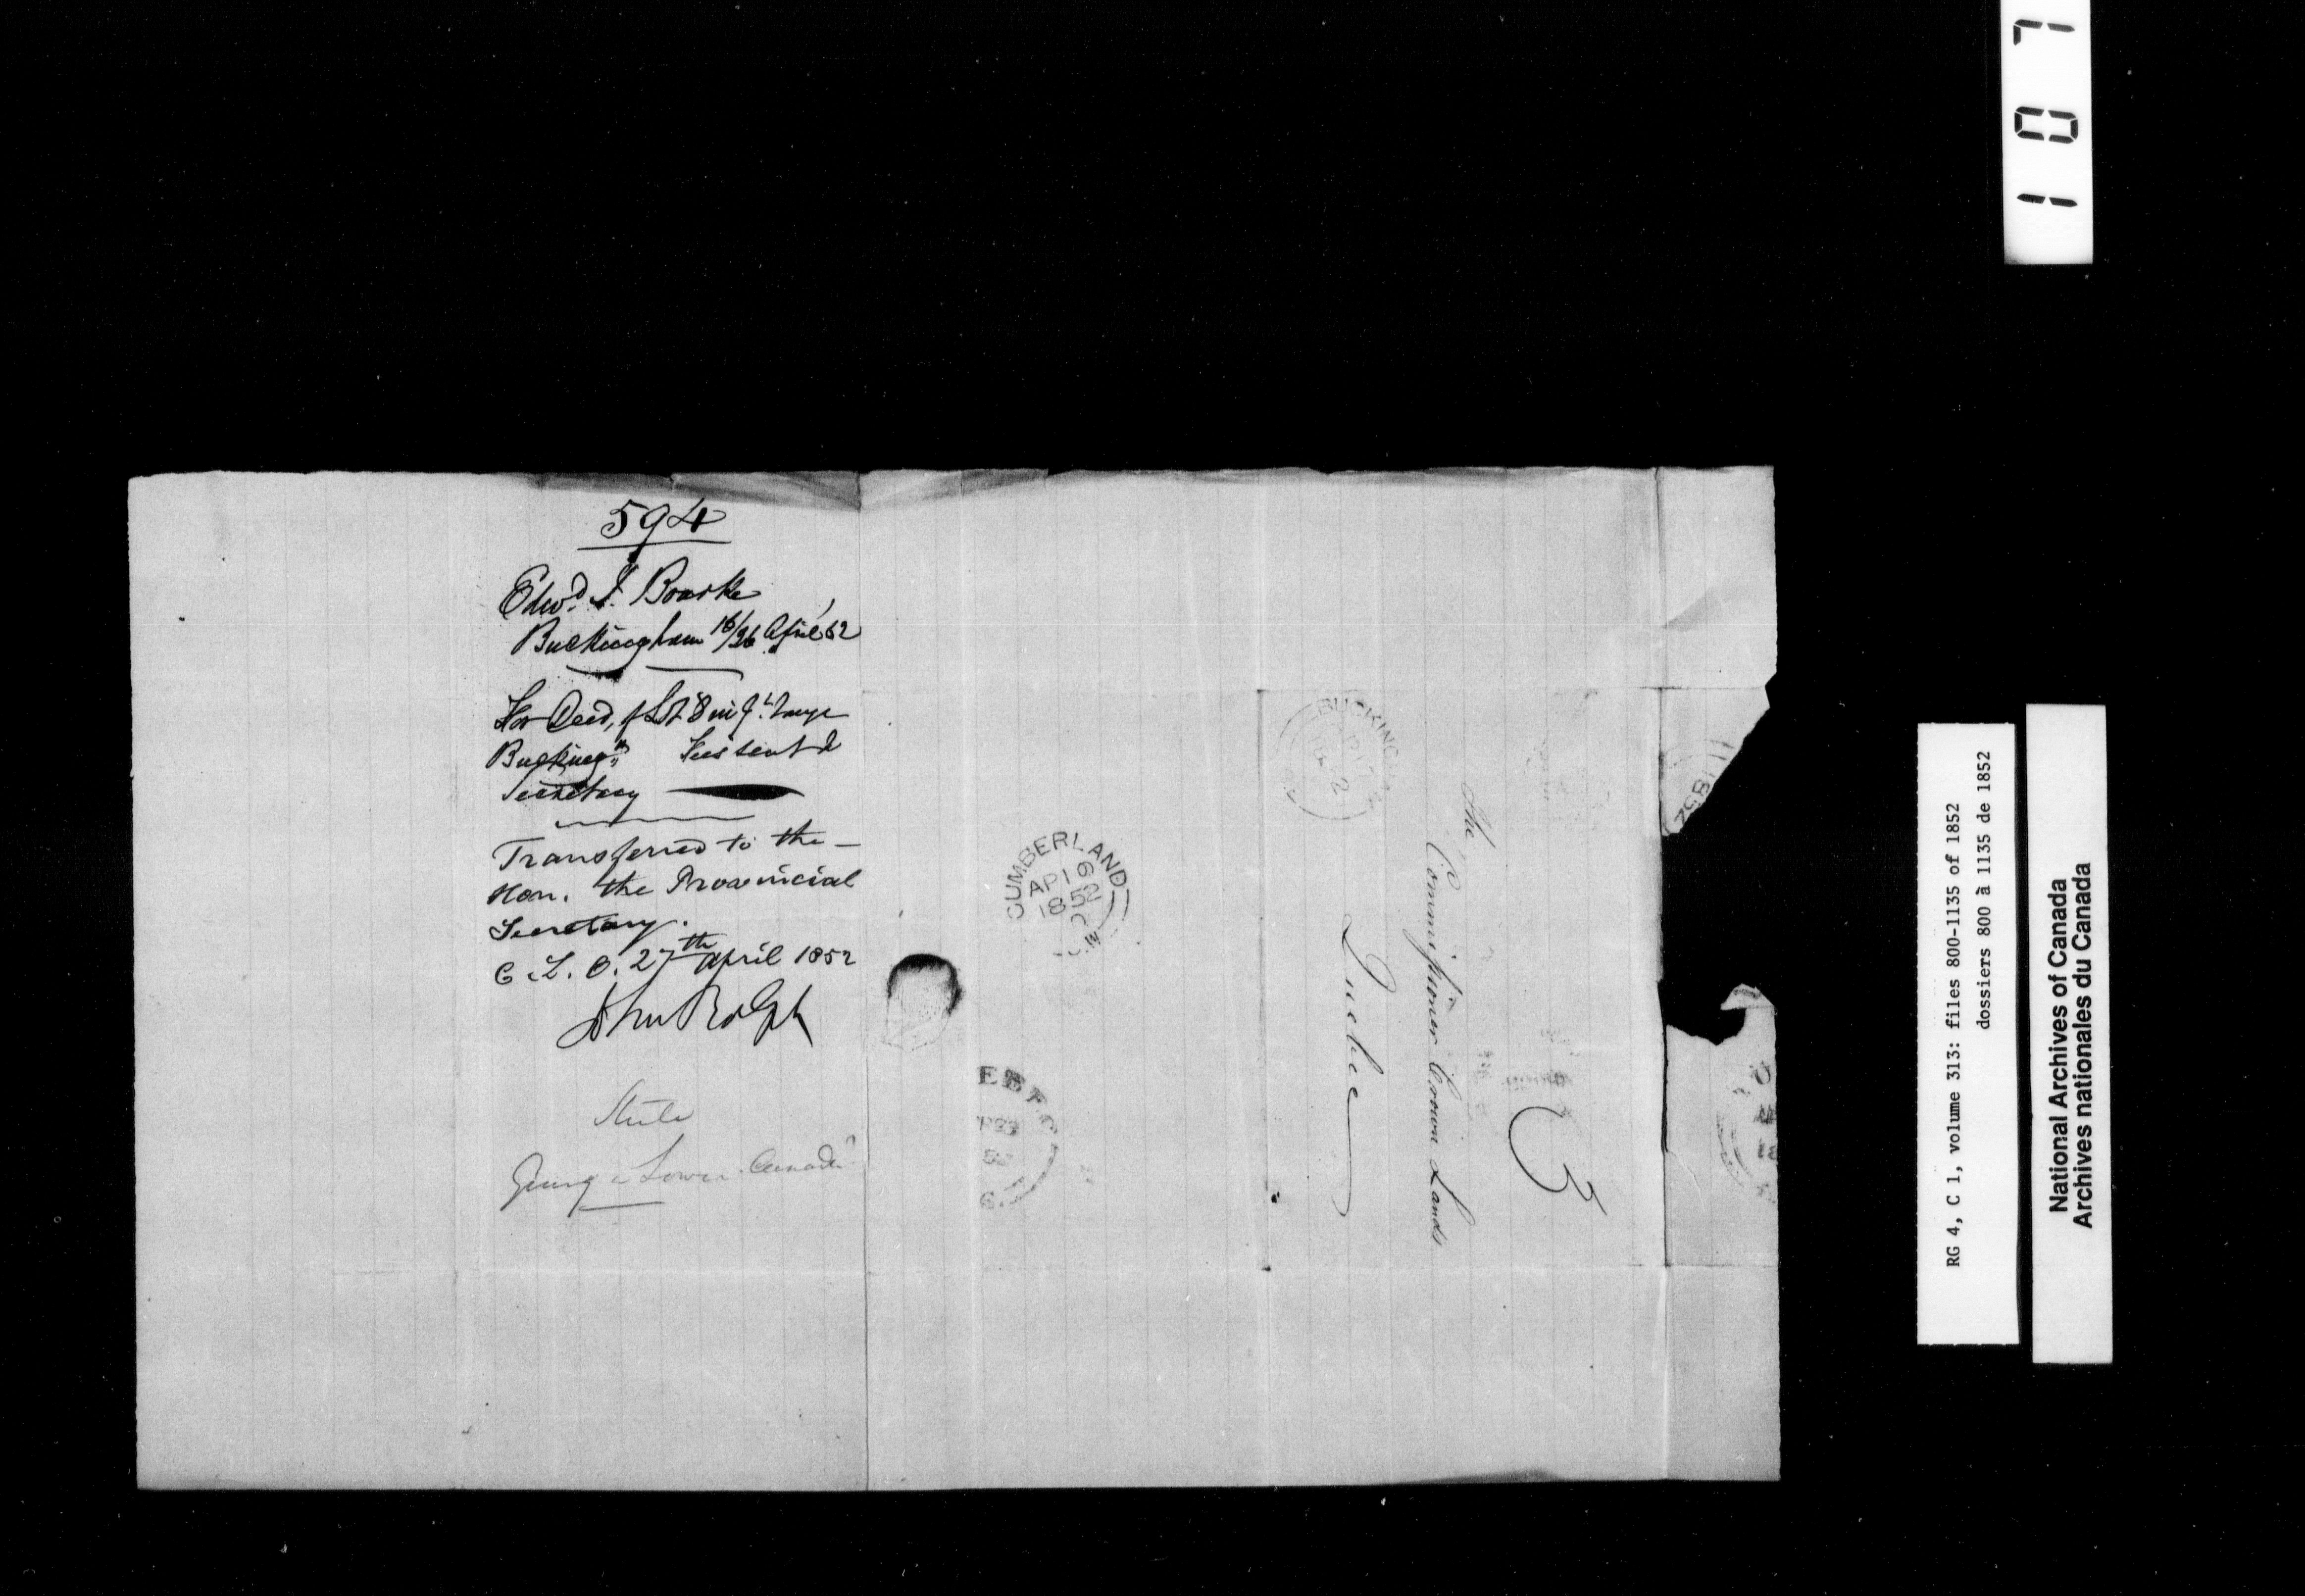 594
Edwd. J. Bourke
Buckingham 16/26 April 52
For Deed, of Lot 8 in Range
Bucking.m Fees sent to
Secretary
Transferred to the
Hon. the Provincial
Secretary.
C. L. O. 27th April 1852
John Rolph
Lower Canada
CUMBERLAND
AP 19
1852
BUCKING
The
Commissioner Crown Lands
Quebec
3
1852
107
RG 4, C 1, volume 313: files 800-1135 of 1852
dossiers 800 à 1135 de 1852
National Archives of Canada
Archives nationales du Canada